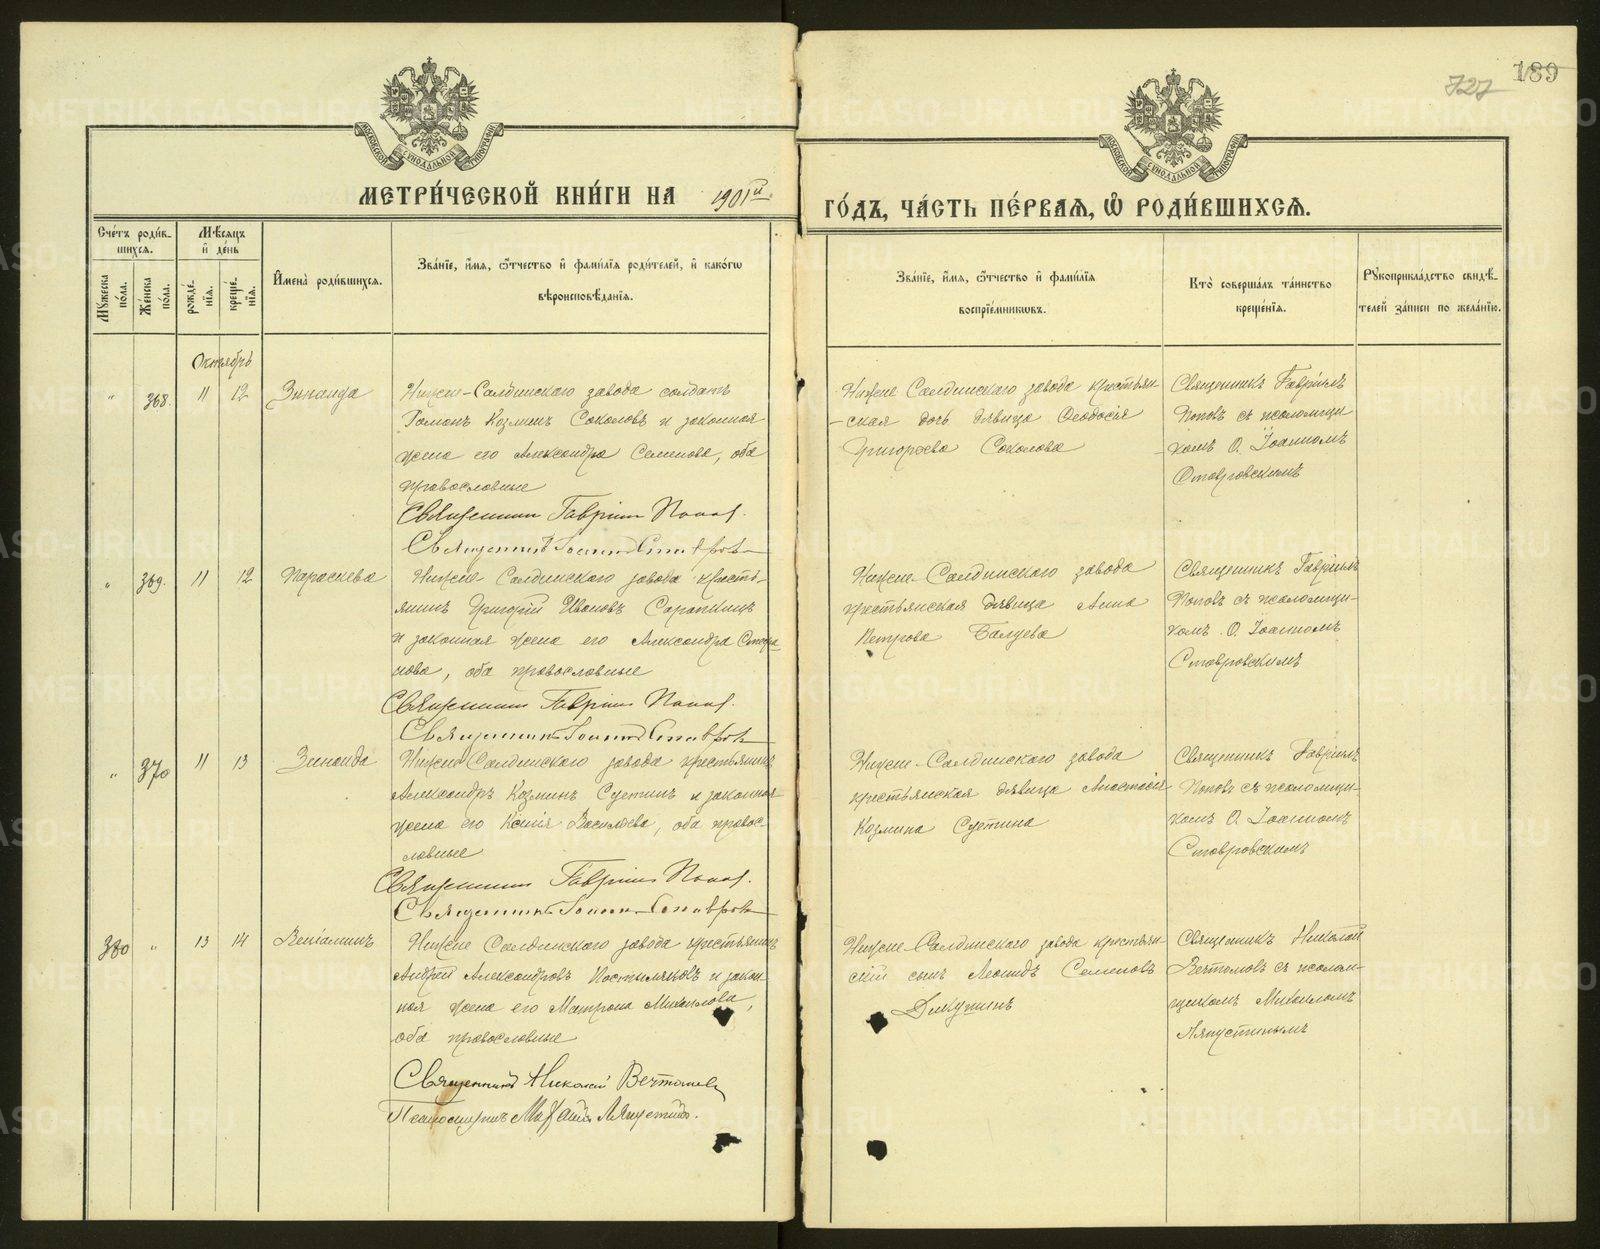 189
727
МОСКОВСКОЙ СѴНОДАЛЬНОЙ ТИПОГРАФИИ
МОСКОВСКОЙ СѴНОДАЛЬНОЙ ТИПОГРАФИИ
МЕТРИ́ЧЕСКОЙ КНИ́ГИ НА 1901й
ГО́ДЪ, ЧА́СТЬ ПЕ́РВАѦ, Ѽ РОДИ́ВШИХСѦ.
Сче́тъ роди́в-
шихсѧ.
Мѣсѧцъ
и҆ де́нь
Мꙋжеска по́ла.
Же́нска по́ла.
рожде́-
нїѧ.
креще́-
нїѧ.
И҆мена̀ роди́вшихсѧ.
Зва́нїе, и҆́мѧ, ѻ҆́тчество и҆ фами́лїѧ роди́телей, и҆ како́гѡ
вѣроисповѣ́данїѧ.
Зва́нїе, и҆́мѧ, ѻ҆́тчество и҆ фами́лїѧ
воспрїе́мникѡвъ.
Кто̀ соверша́лъ та́инство
креще́нїѧ.
Рꙋкоприкла́дство свидѣ́-
телей за́писи по жела́нїю.
Октябрь
„ 368. 11 12 Зинаида
Нижне-Салдинскаго завода солдатъ
Романъ Козминъ Соколовъ и законная
жена его Александра Семенова, оба
православные
Священникъ Гавріилъ Поповъ.
Священникъ Іоаннъ Ставров
Нижне Салдинскаго завода крестьян-
ская дочь дѣвица Ѳеодосія
Григорьева Соколова
Священникъ Гавріилъ
Поповъ съ псаломщи-
комъ О. Іоанномъ
Ставровскимъ
„ 369. 11 12 Параскева
Нижне-Салдинскаго завода кресть-
янинъ Григорій Ивановъ
и законная жена его Александра Степа-
нова, оба православные
Священникъ Гавріилъ Поповъ.
Священникъ Іоаннъ Ставров
Нижне-Салдинскаго завода
крестьянская дѣвица Анна
Петрова Балуева
Священникъ Гавріилъ
Поповъ съ псаломщи-
комъ О. Іоанномъ
Ставровскимъ
„ 370 11 13 Зинаида
Нижне Салдинскаго завода крестьянинъ
Александръ Козминъ Суетинъ и законная
жена его Ксенія Васильева, оба правос-
лавные
Священникъ Гавріилъ Поповъ.
Священникъ Іоаннъ Ставров
Нижне-Салдинскаго завода
крестьянская дѣвица Анастасія
Козмина Суетина
Священникъ Гавріилъ
Поповъ съ псаломщи-
комъ О. Іоанномъ
Ставровскимъ
380 „ 13 14 Веніаминъ
Нижне Салдинскаго завода крестьянинъ
Андрей Александровъ Постыляковъ и закон-
ная жена его Матрона Михаилова,
оба православные
Священникъ Николай Вечтомовъ
Псаломщикъ Михаилъ Ляпустинъ.
Нижне-Салдинскаго завода крестьян-
скій сынъ Леонидъ Семеновъ
Дикушинъ
Священникъ Николай
Вечтомовъ съ псалом-
щикомъ Михаиломъ
Ляпустинымъ
METRIKI.GASO-URAL.RU